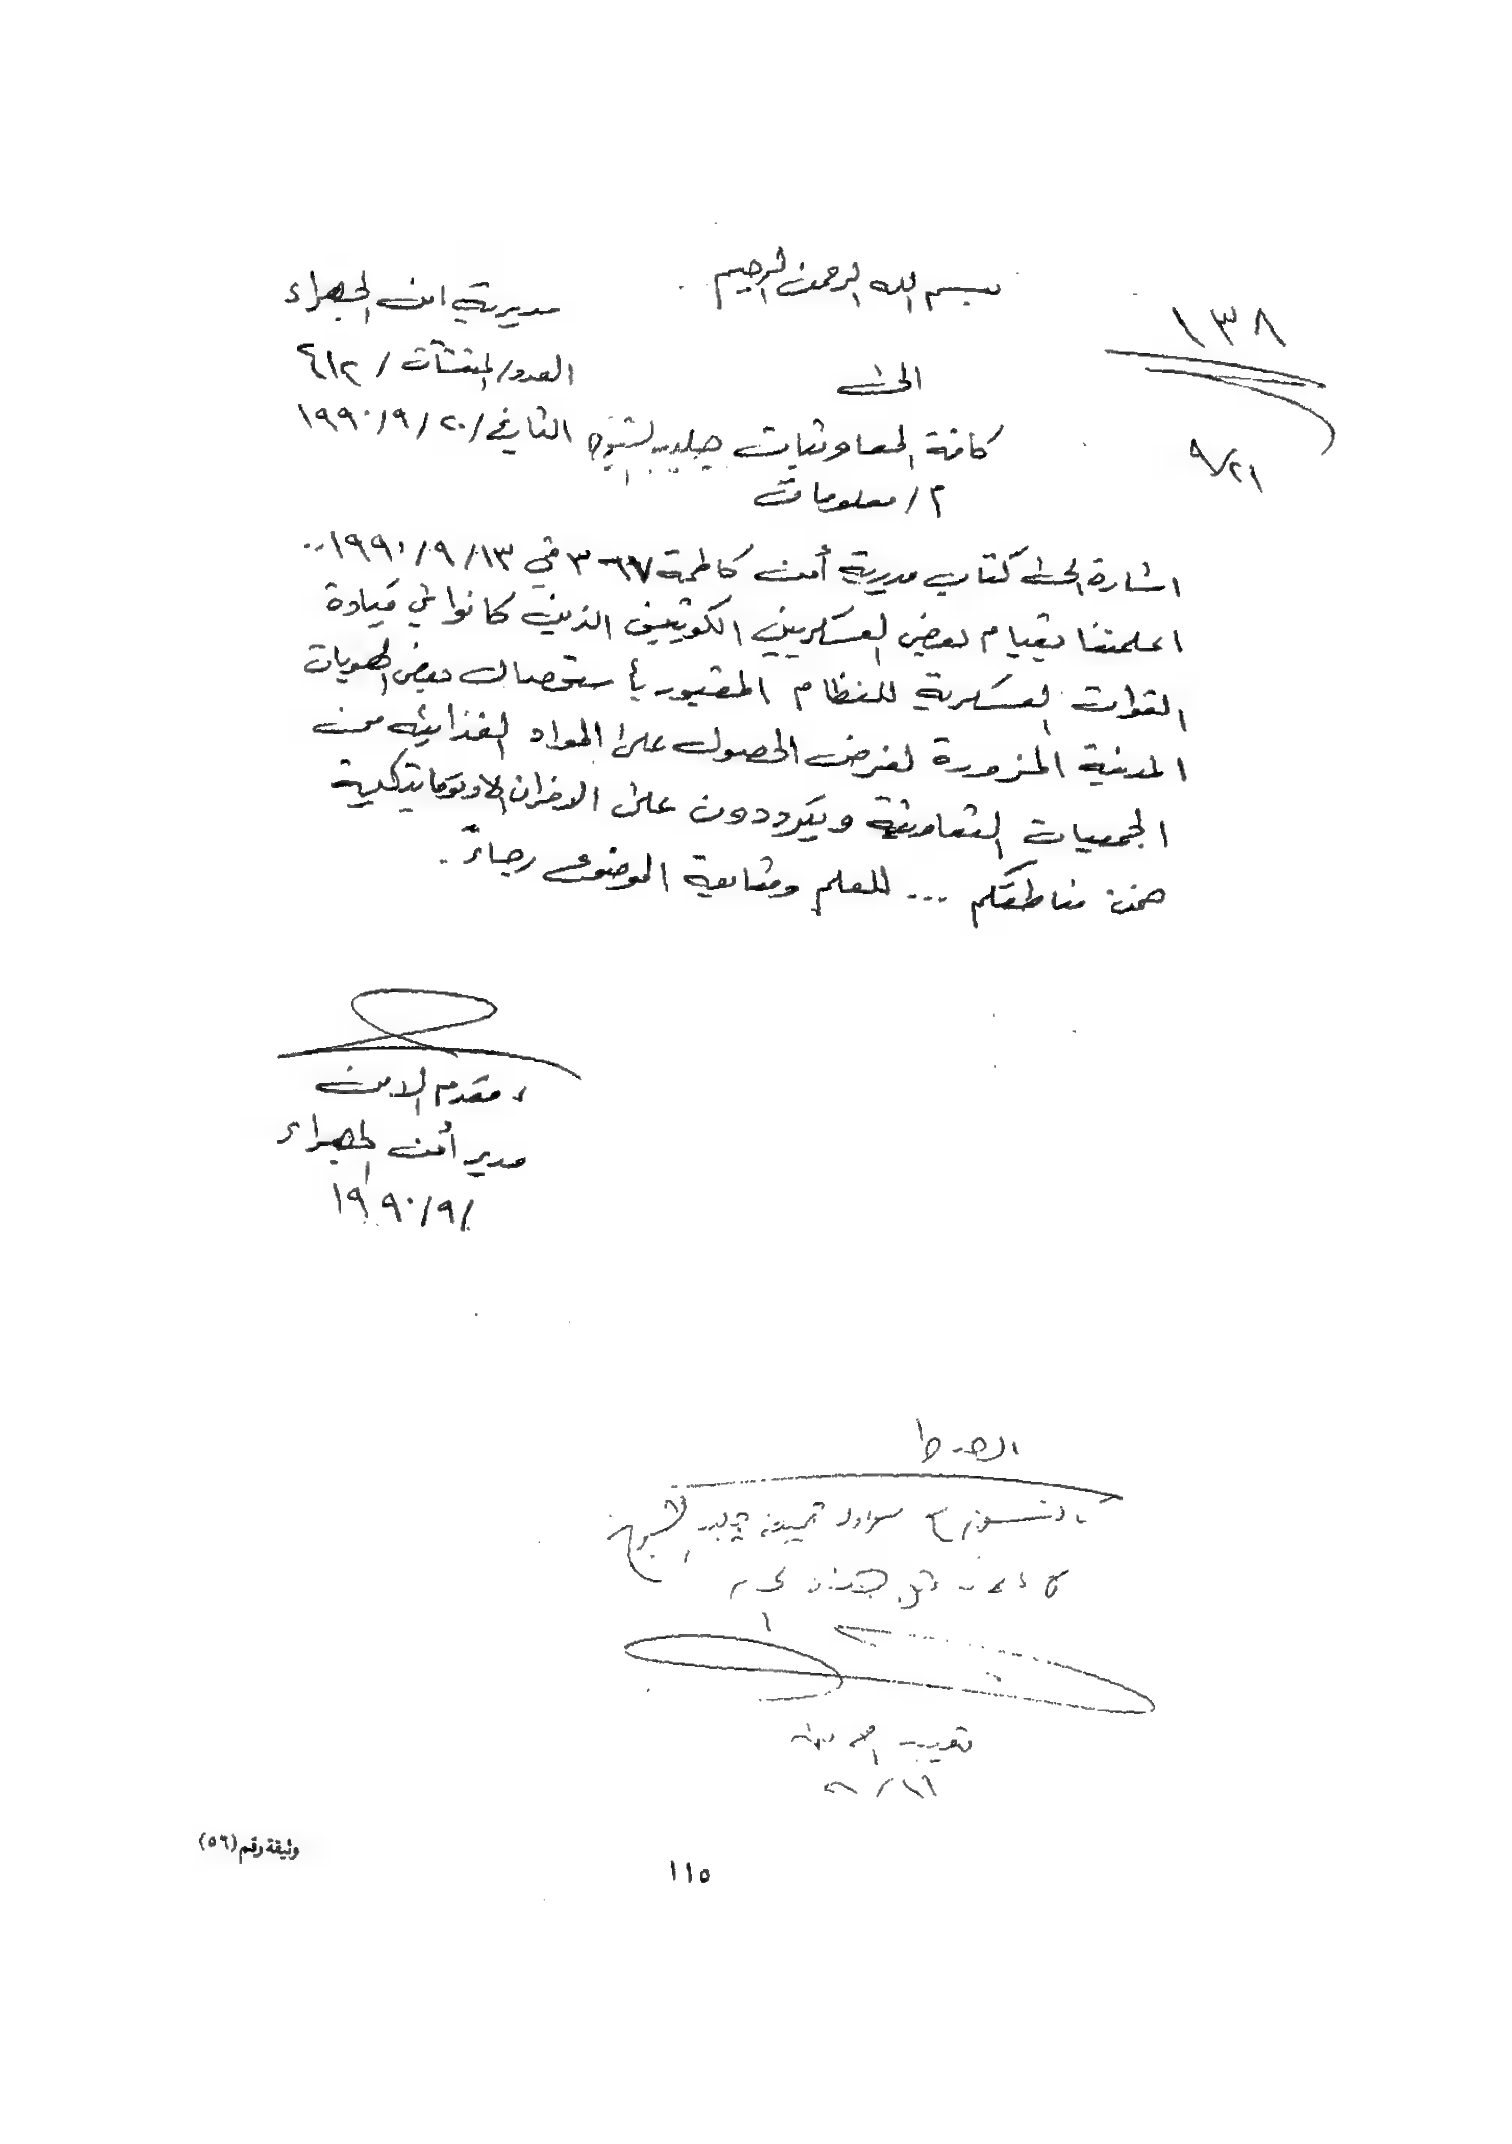 بسم الله الرحمن الرحيم
مديرية امن الجهراء
١٣٨
الى
العدد/المنشآت / ٦١٢
كافة المعاونيات جليب الشيوخ
التاريخ/ ٢٠ / ٩ /١٩٩٠
٩/٢١
م / معلومات
اشارة الى كتاب مديرية أمن كاظمة ٣٠٦٧ في ١٣ / ٩ / ١٩٩٠ ..
اعلمتنا بقيام بعض العسكريين الكويتيين الذين كانوا في قيادة
القوات العسكرية للنظام المقبور بأستحصال بعض الهويات
المدنية المزورة لغرض الحصول على المواد الغذائيه من
الجمعيات التعاونية ويترددون على الافران الاوتوماتيكية
ضمن مناطقكم ... للعلم ومتابعة الموضوع رجاءً .
مقدم الامن
مدير أمن الجهراء
/ ٩ / ١٩٩٠
جليب الشيوخ
نقيب الامن
٩/٢١
وثيقة رقم (٥٦)
١١٥